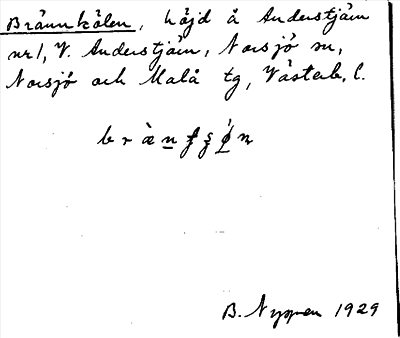 Brännkölen, höjd å Anderstjärn
nr 1, V. Anderstjärn, Norsjö sn,
Norsjö och Malå tg, Västerb. l.
B. Nyman 1929